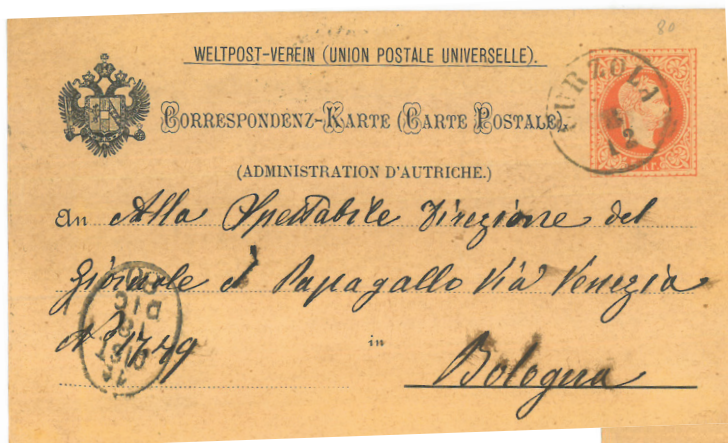 80
WELTPOST-VEREIN (UNION POSTALE UNIVERSELLE).
CORRESPONDENZ-KARTE (CARTE POSTALE).
(ADMINISTRATION D'AUTRICHE.)
CURZOLA
An Alla Spettabile Direzione del
Giornale il Papagallo Via Venezia
N° 1749
in
Bologna
DIC